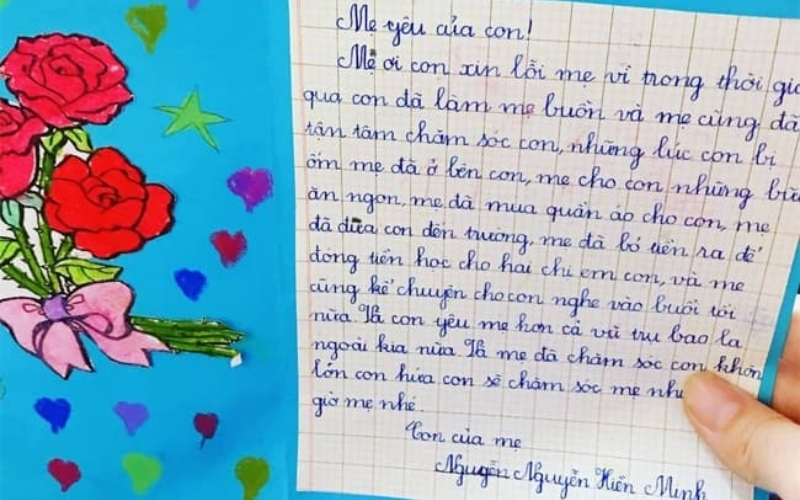 Mẹ yêu của con!
Mẹ ơi con xin lỗi mẹ vì trong thời gia
qua con đã làm mẹ buồn và mẹ cũng đã
tận tâm chăm sóc con, những lúc con bị
ốm mẹ đã ở bên con, mẹ cho con những bữa
ăn ngon, mẹ đã mua quần áo cho con, mẹ
đã đưa con đến trường, mẹ đã bỏ tiền ra để
đóng tiền học cho hai chị em con, và mẹ
cũng kể chuyện cho con nghe vào buổi tối
nữa. Và con yêu mẹ hơn cả vũ trụ bao la
ngoài kia nữa. Và mẹ đã chăm sóc con khôn
lớn con hứa con sẽ chăm sóc mẹ như
giờ mẹ nhé.
Con của mẹ
Nguyễn Nguyễn Hiền Minh